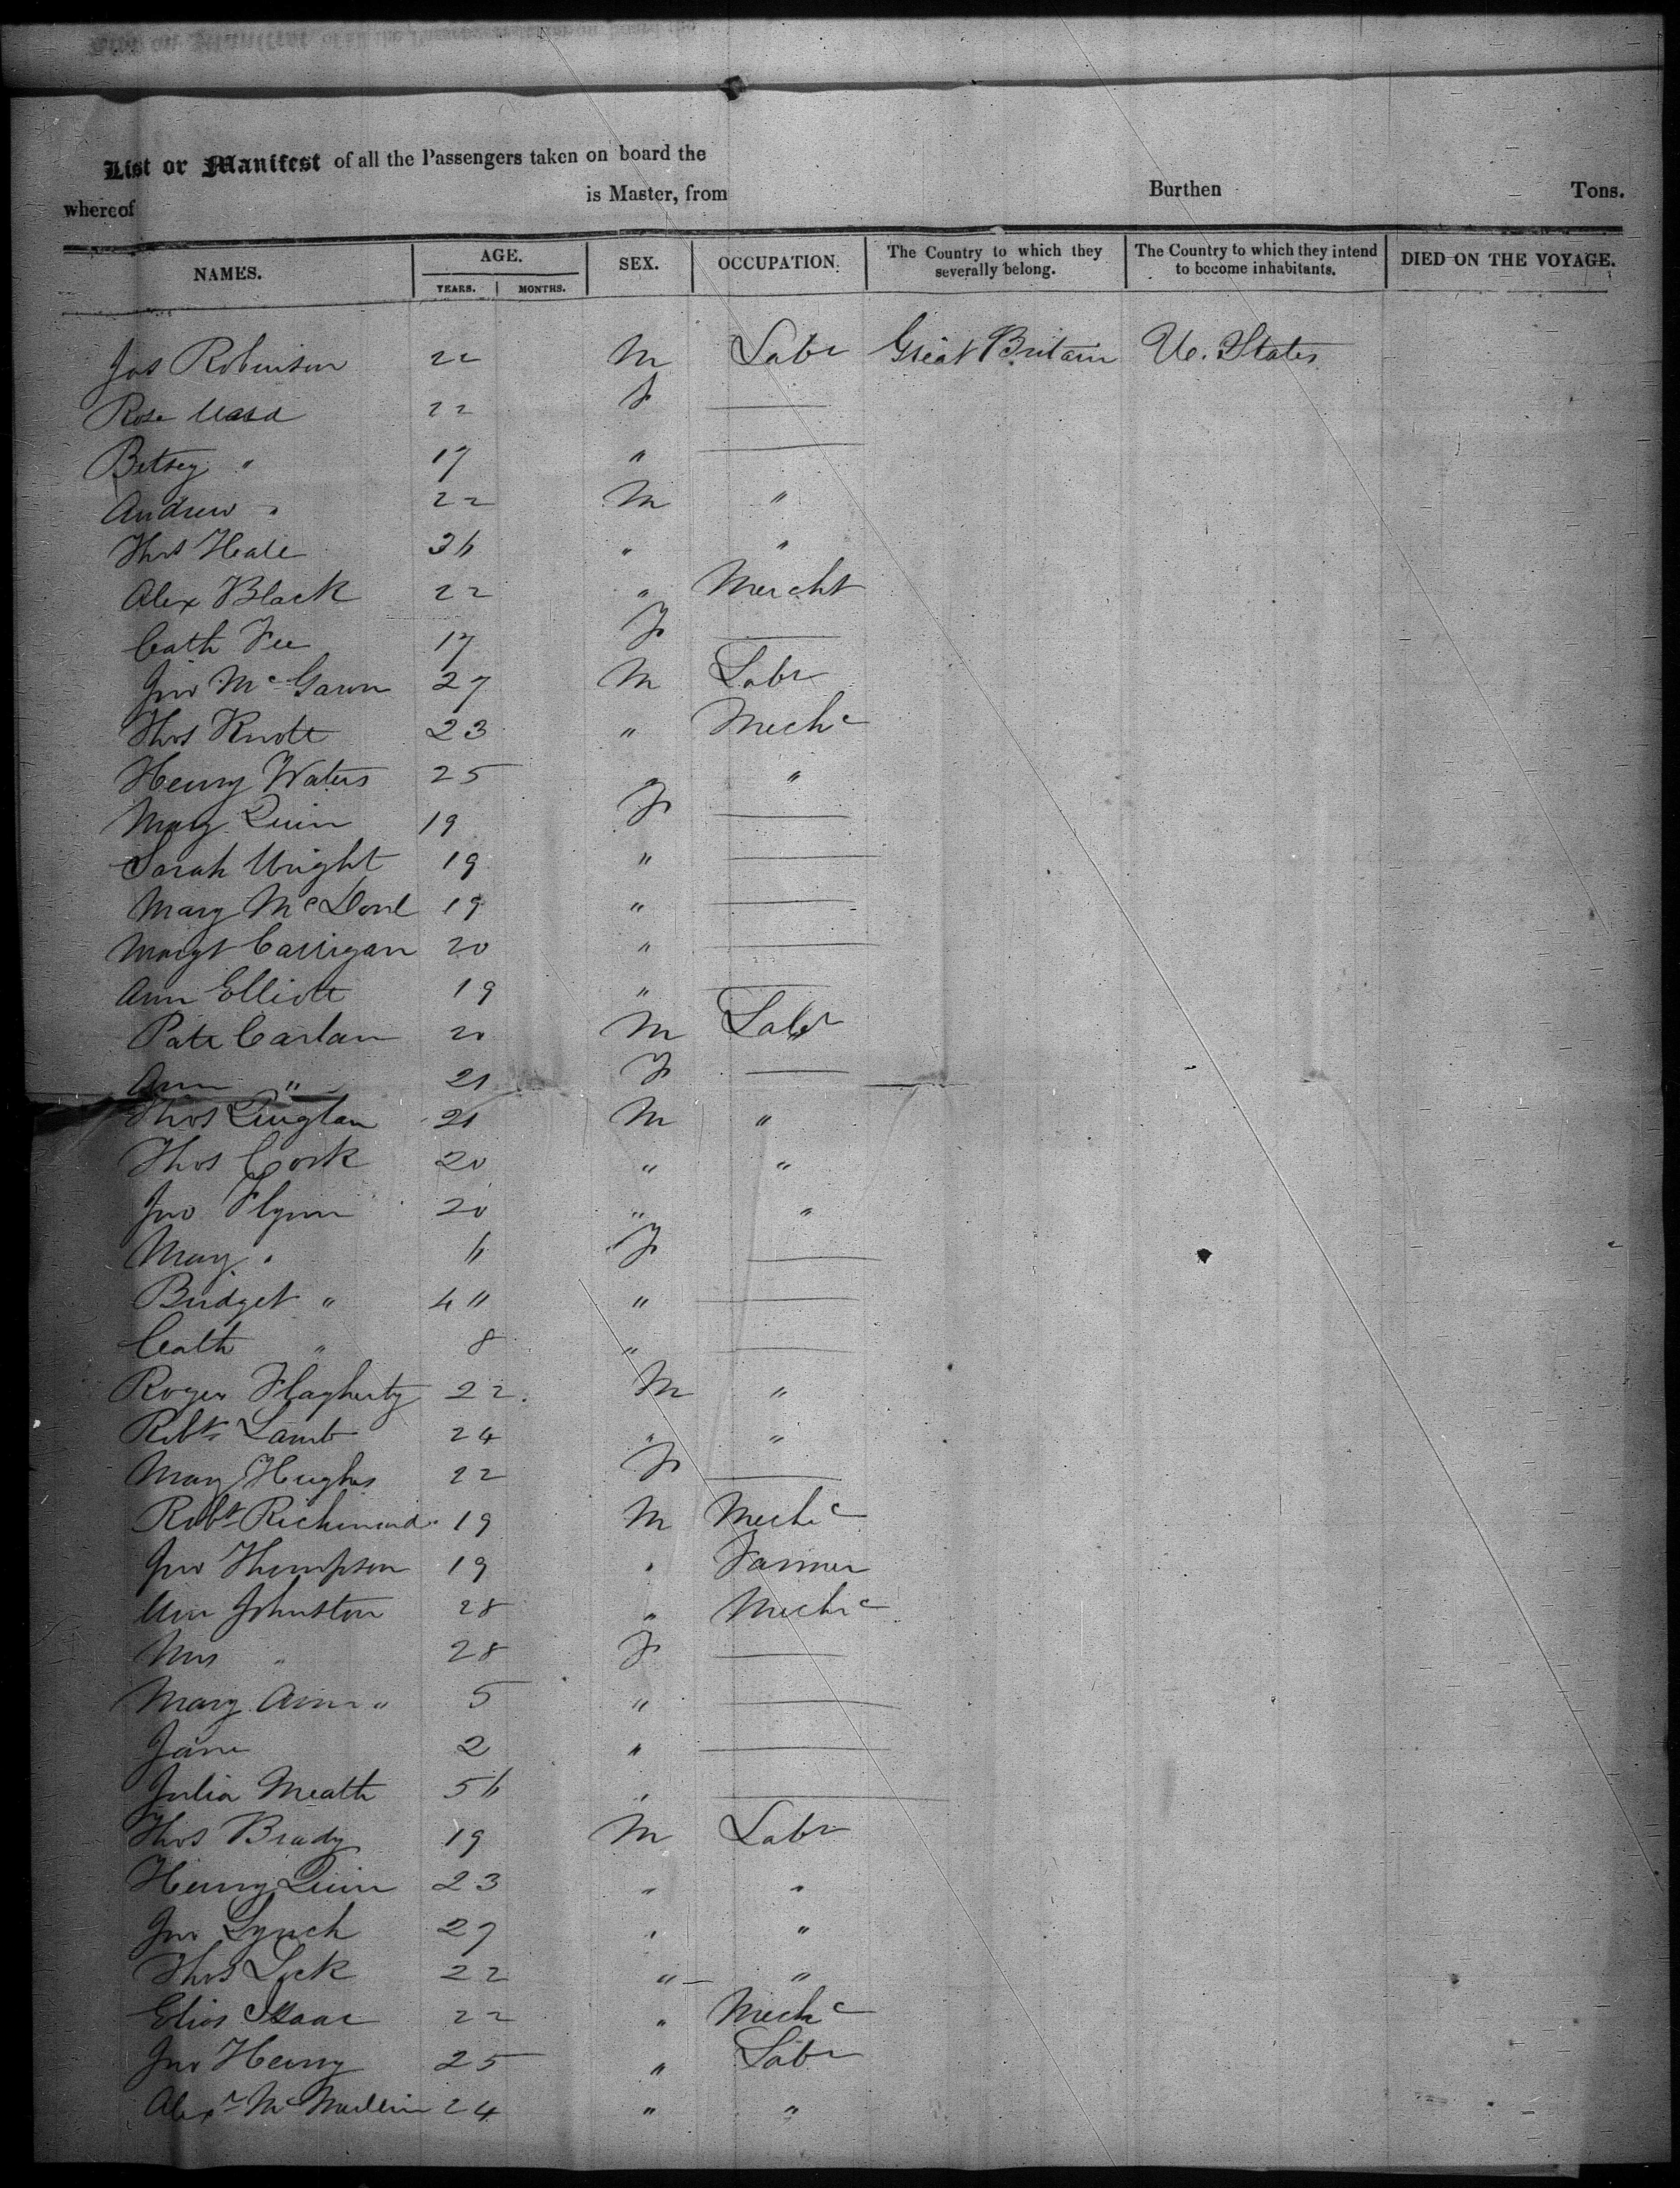 List or Manifest of all the Passengers taken on board the
whereof is Master, from Burthen Tons.
NAMES. AGE. SEX. OCCUPATION. The Country to which they severally belong. The Country to which they intend to become inhabitants. DIED ON THE VOYAGE.
YEARS. MONTHS.
Jas Robinson 22 M Labr Great Britain U. States
Rose Ward 22 F
Betsey " 17 "
Andrew " 22 M "
Thos Heale 36 " "
Alex Black 22 " Mercht
Cath Fee 17 F
Jno McGawn 27 M Labr
Thos Knott 23 " Mechc
Henry Waters 25 "
Mary Quin 19 F
Sarah Wright 19 "
Mary McDonl 19 "
Margt Carrigan 20 "
Ann Elliott 19 "
Patk Carlan 20 M Labr
Ann " 21 F
Thos 21 M "
Thos Cork 20 " "
Jno Flynn 20 " "
Mary " 6 F
Bridget " 4 " "
Cath " 8 "
Roger Flagherty 22 M "
Robt Lamb 24 " "
Mary Hughes 22 F
Robt Richmond 19 M Mechc
Jno Thompson 19 " Farmer
Wm Johnston 28 " Mechc
Mrs " 28 F
Mary Ann " 5 "
Jane 2 "
Julia Meath 56 "
Thos Brady 19 M Labr
Henry Quin 23 " "
Jno Lynch 27 " "
Thos Lock 22 " "
Elias Isaac 22 " Mechc
Jno Henry 25 " Labr
Alexr McMullin 24 " "